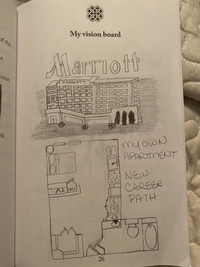 My vision board
Marriott
MY OWN
APARTMENT
NEW
CAREER
PATH
26